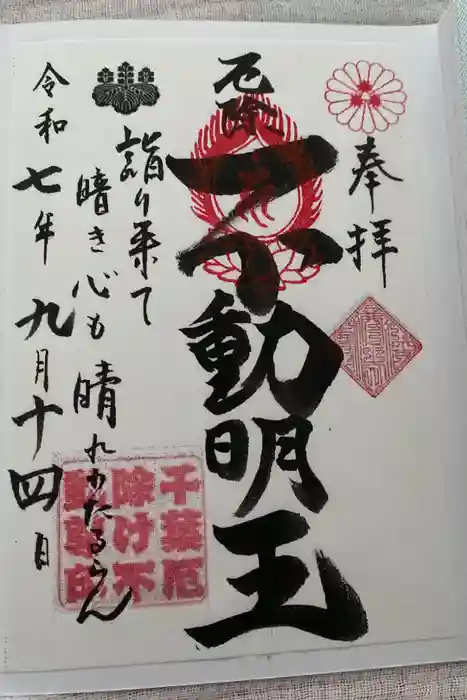 奉拝
厄除
不動明王
詣り来て
暗き心も晴れわたるらん
令和七年九月十四日
千葉厄
除け不
動尊印